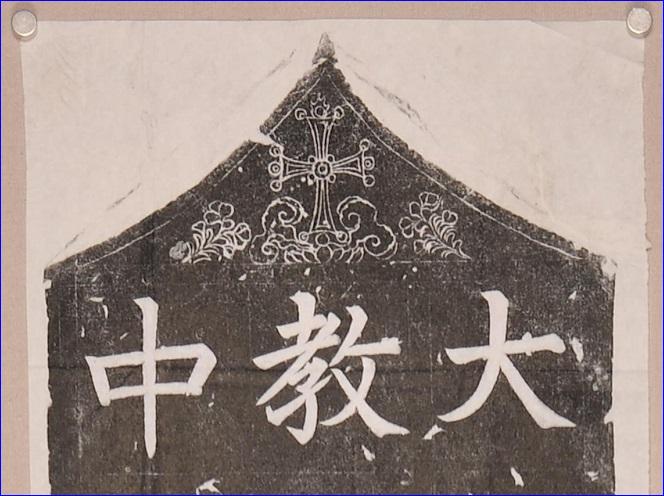 大
教
中